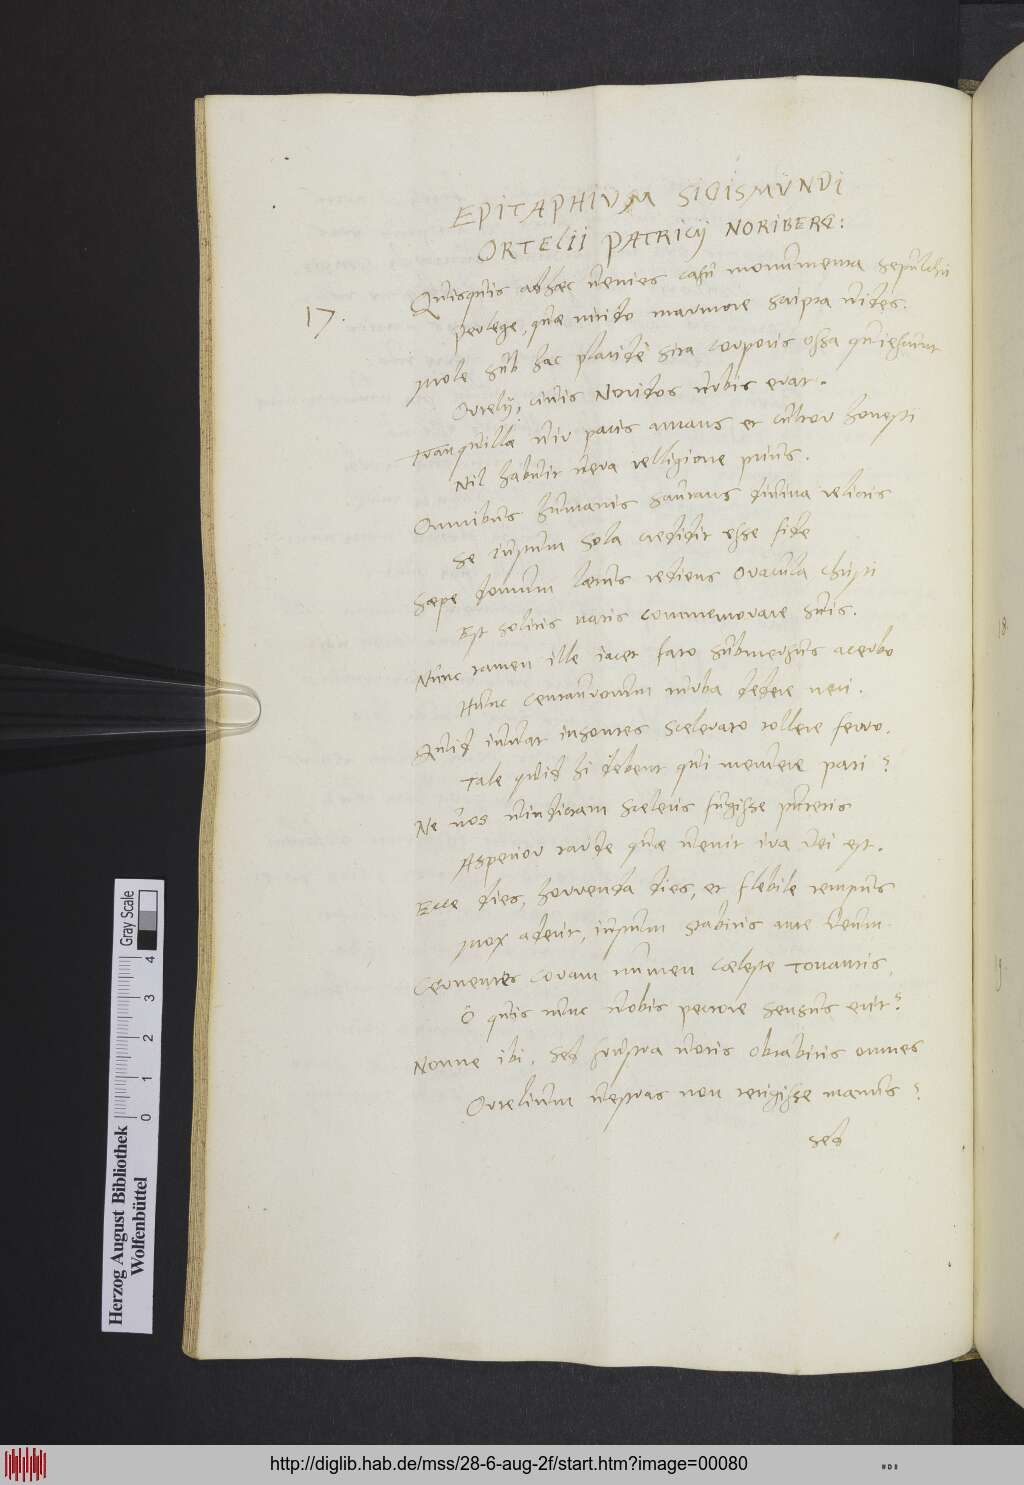 EPITAPHIUM SIGISMUNDI
ORTELII PATRICII NORIBERG:
17.
Quisquis ad haec uenies casu monumenta sepulchri
Perlege, quae nitido marmore scripta uides.
Mole sub hac placide sita corporis ossa quiescunt
Ortelij, ciuis Noridos urbis erat.
Tranquillae uir pacis amans et cultor honesti
Nil habuit uera relligione prius.
Omnibus humanis sacrans diuina relictis
Se iustum sola credidit esse fide
Saepe domum laetus rediens oracula Christi
Est solitus natis commemorare suis.
Nunc tamen ille iacet fato submersus acerbo
Hunc Centaurorum turba dedere neci.
Quid iuuat insontes scelerato tollere ferro.
Tale quid hi debent qui meruere pati?
Ne uos uindictam sceleris fugisse putetis
Asperior tarde quae uenit ira Dei est.
Ecce dies, horrenda dies, et flebile tempus
Mox aderit, iustum stabitis ante Deum
Cernentes coram numen caeleste tonantis,
O quis tunc uobis pectore sensus erit?
Nonne ibi, sed frustra uotis optabitis omnes
Ortelium uestras non tetigisse manus?
sed
18
Gray Scale
0 1 2 3 4
Herzog August Bibliothek
Wolfenbüttel
http://diglib.hab.de/mss/28-6-aug-2f/start.htm?image=00080